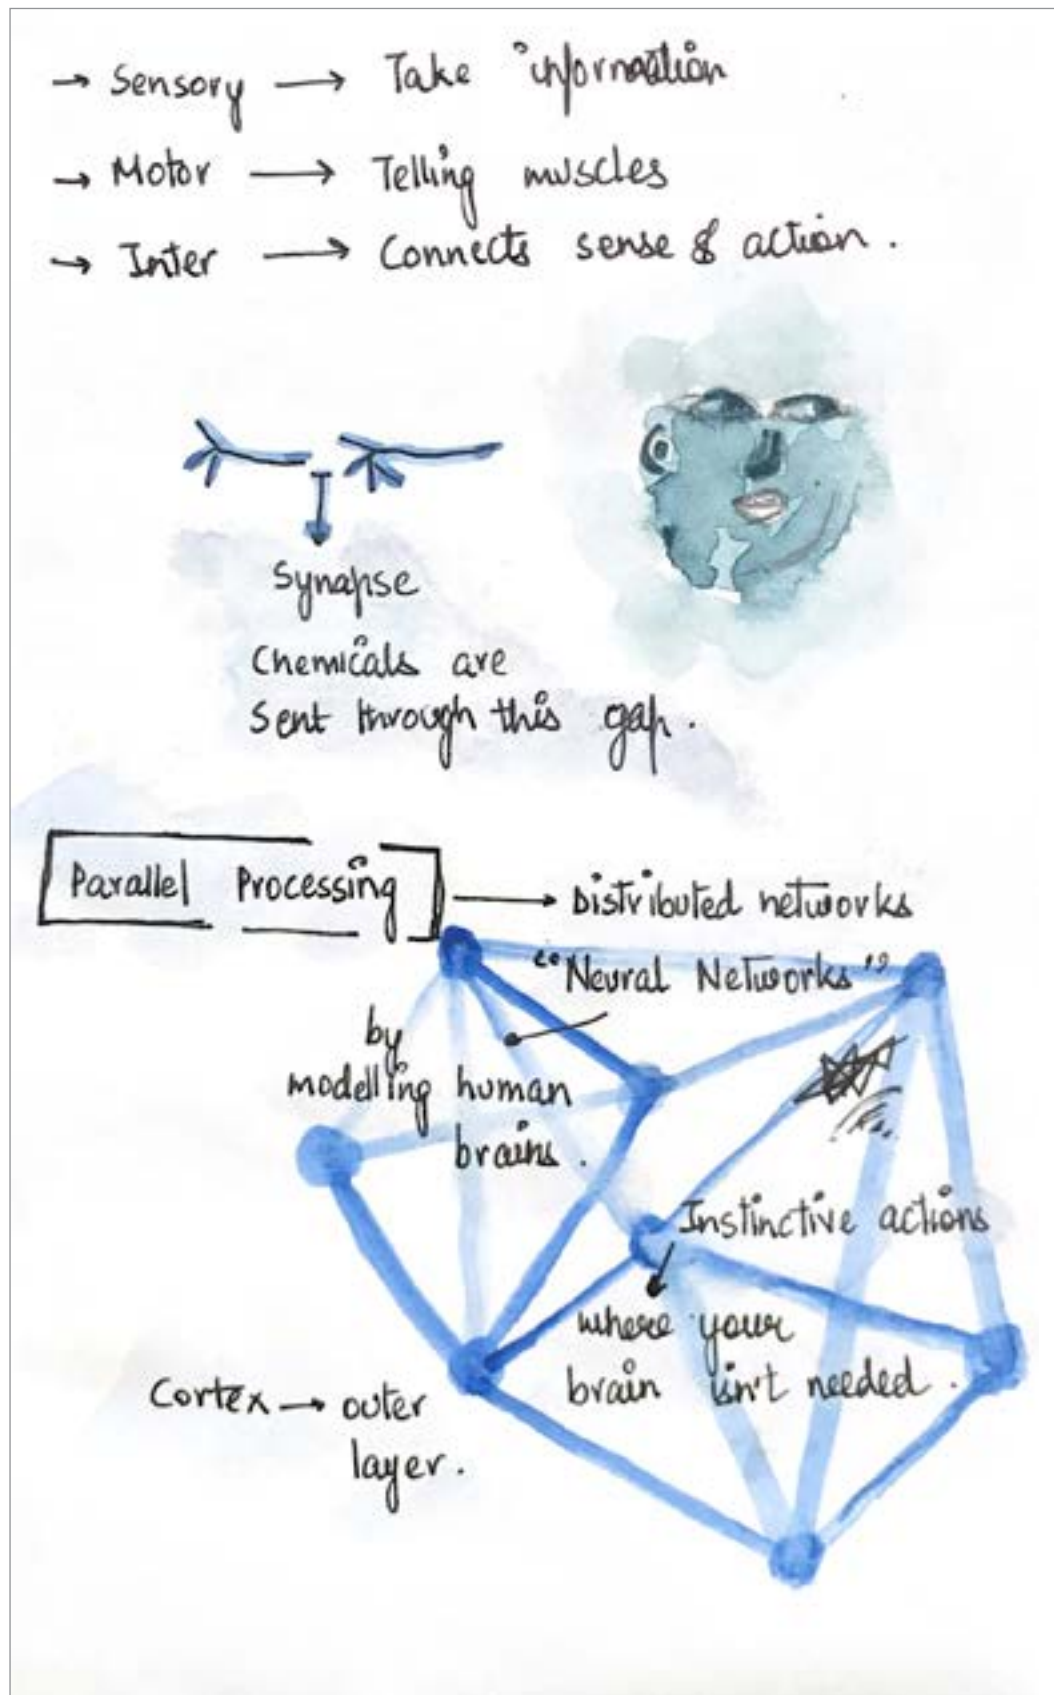 → Sensory → Take information
→ Motor → Telling muscles
→ Inter → Connects sense & action.
Synapse
Chemicals are
sent through this gap.
Parallel Processing → Distributed networks
"Neural Networks"
by
modelling human
brains.
Instinctive actions
where your
brain isn't needed.
Cortex → outer
layer.